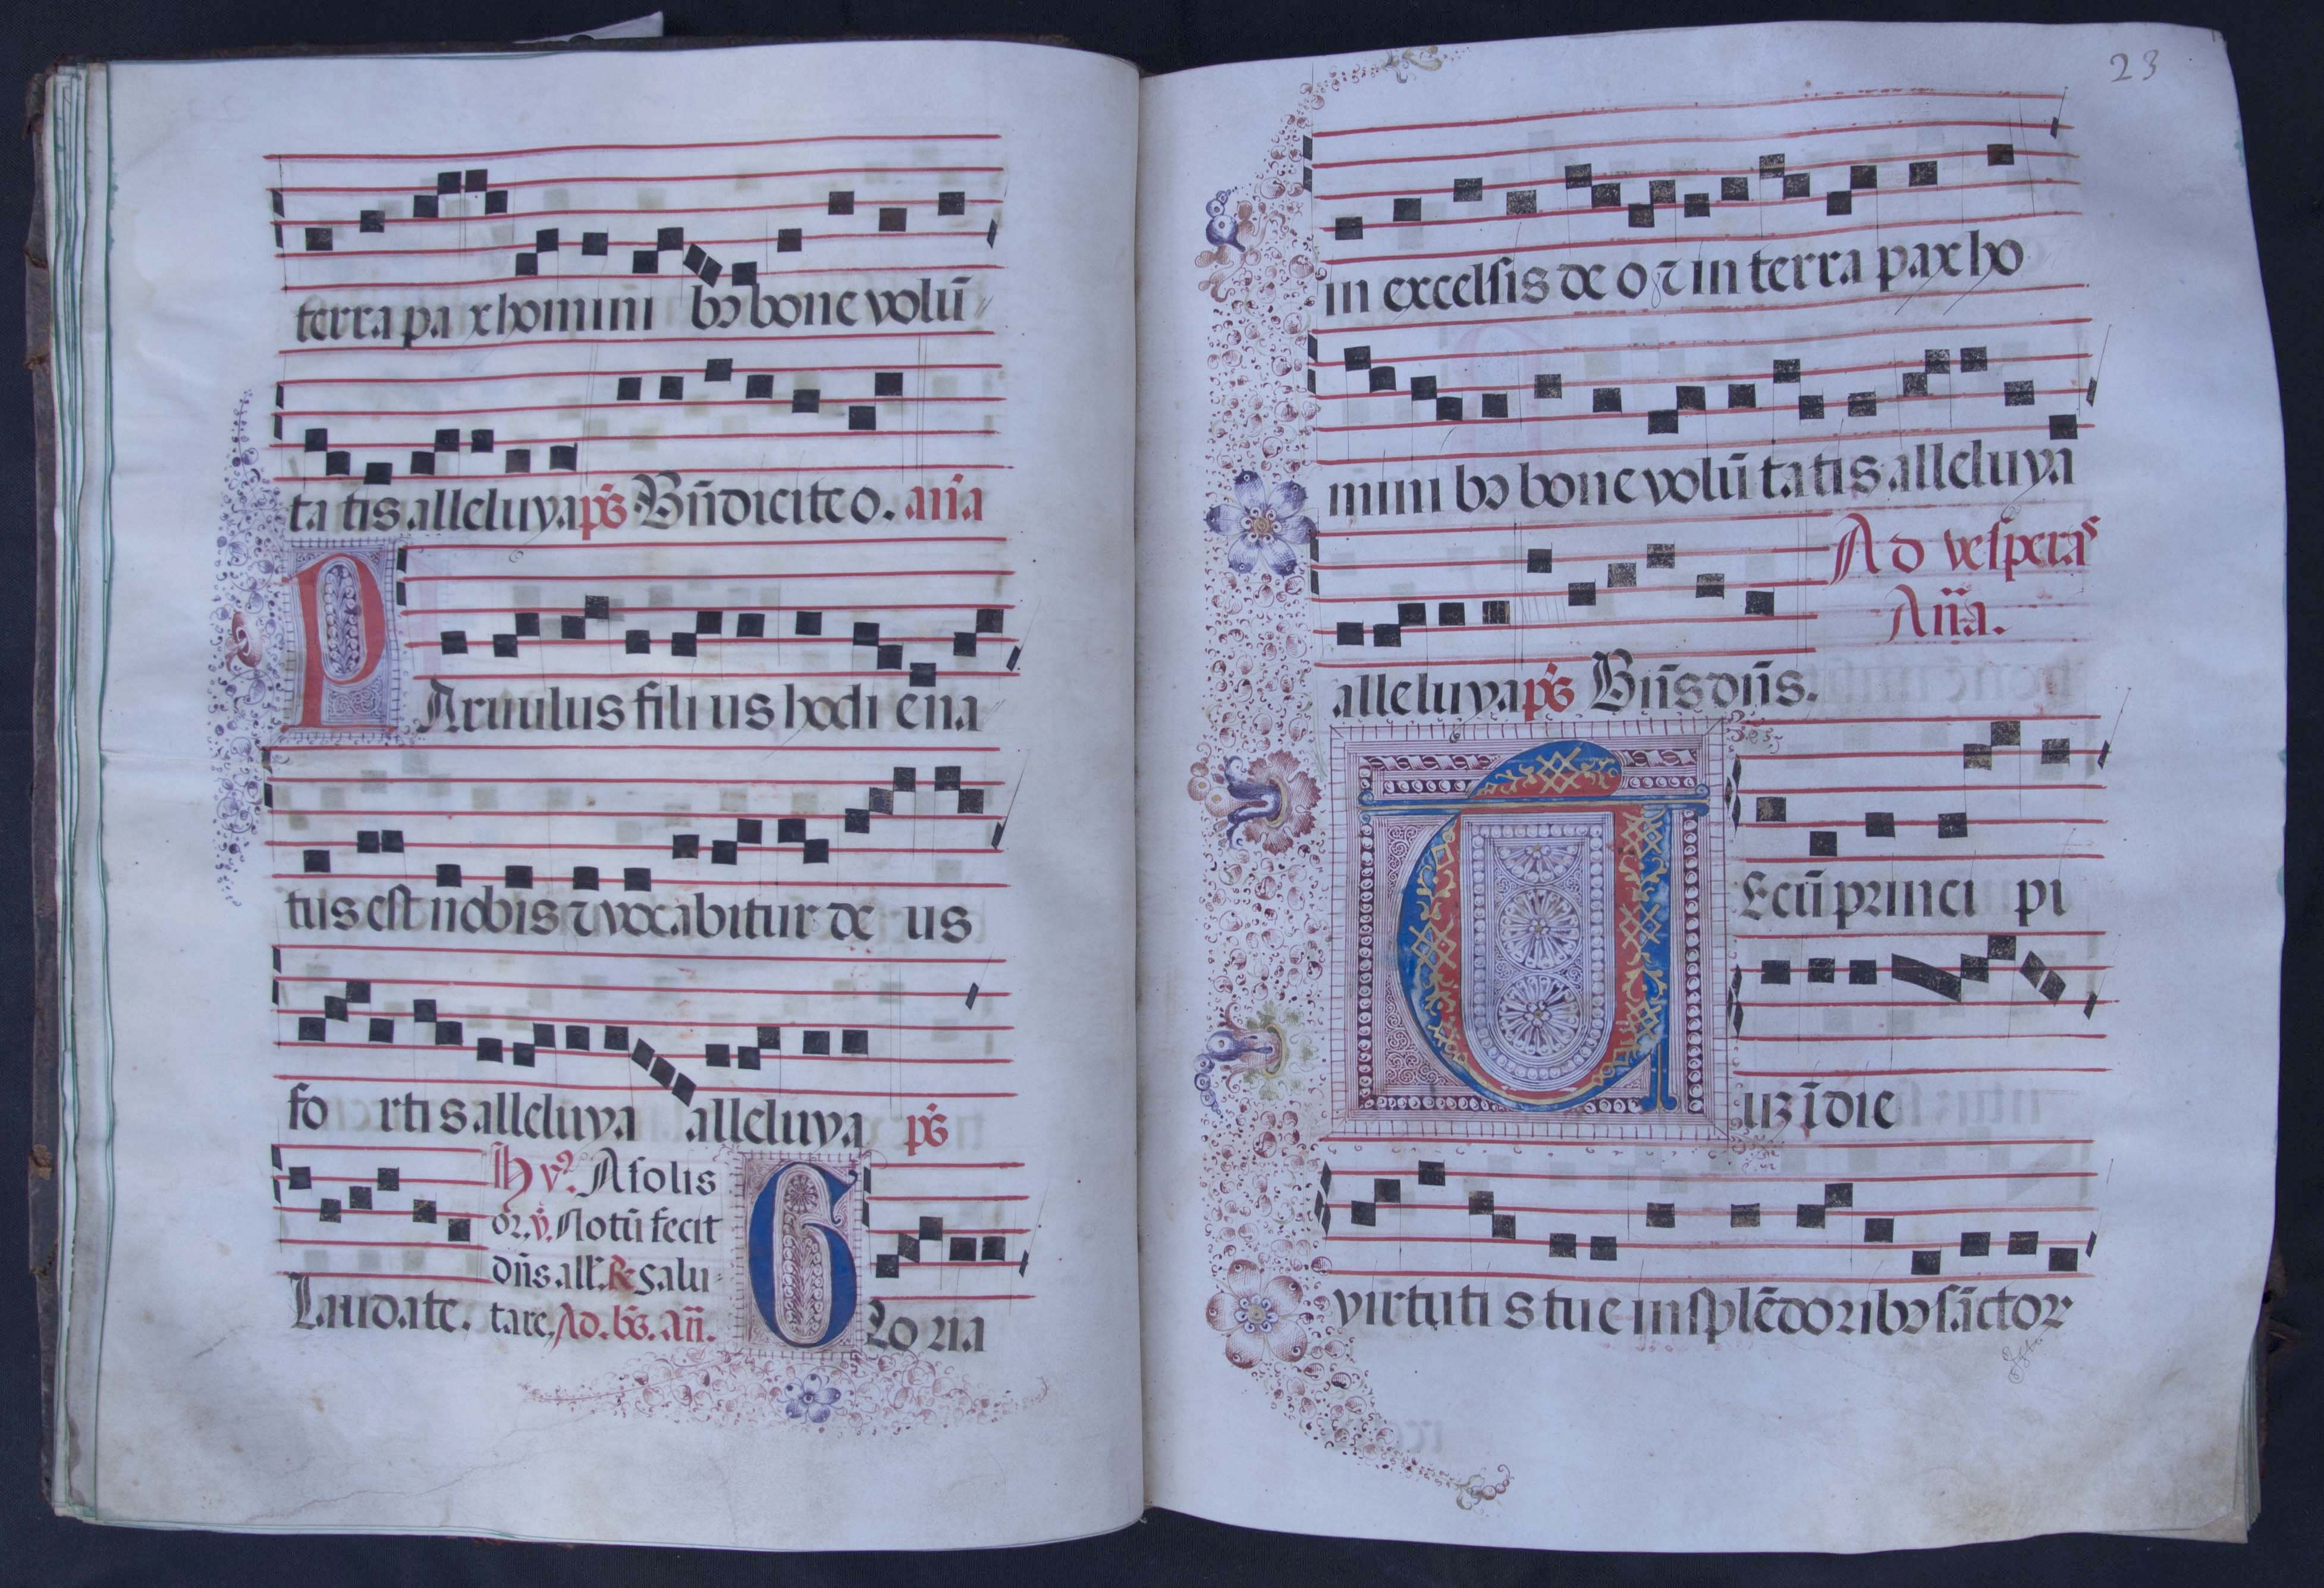 terra pa x homini bꝰ bone volū
ta tis alleluya pẜ Bn̄dicite o. an̄a
P
Arvulus fili us hodi e na
tus est nobis ⁊ vocabitur de us
fo rti s alleluya alleluya pẜ
Hỹ. A solis
or. v̊. Notū fecit
Laudate.
dn̄s all'. R̷ Salu
tare, Ad. bẜ. an̄.
G
Lo ria
23
in excelsis de o ⁊ in terra pax ho
mini bꝰ bone volū ta ti s alleluya
Ad vesperas
An̄a.
alleluya pẜ Bn̄s dn̄s.
T
Ecū princi pi
uꝫ ī die
virtuti s tue in splēdoribꝰ sāctor